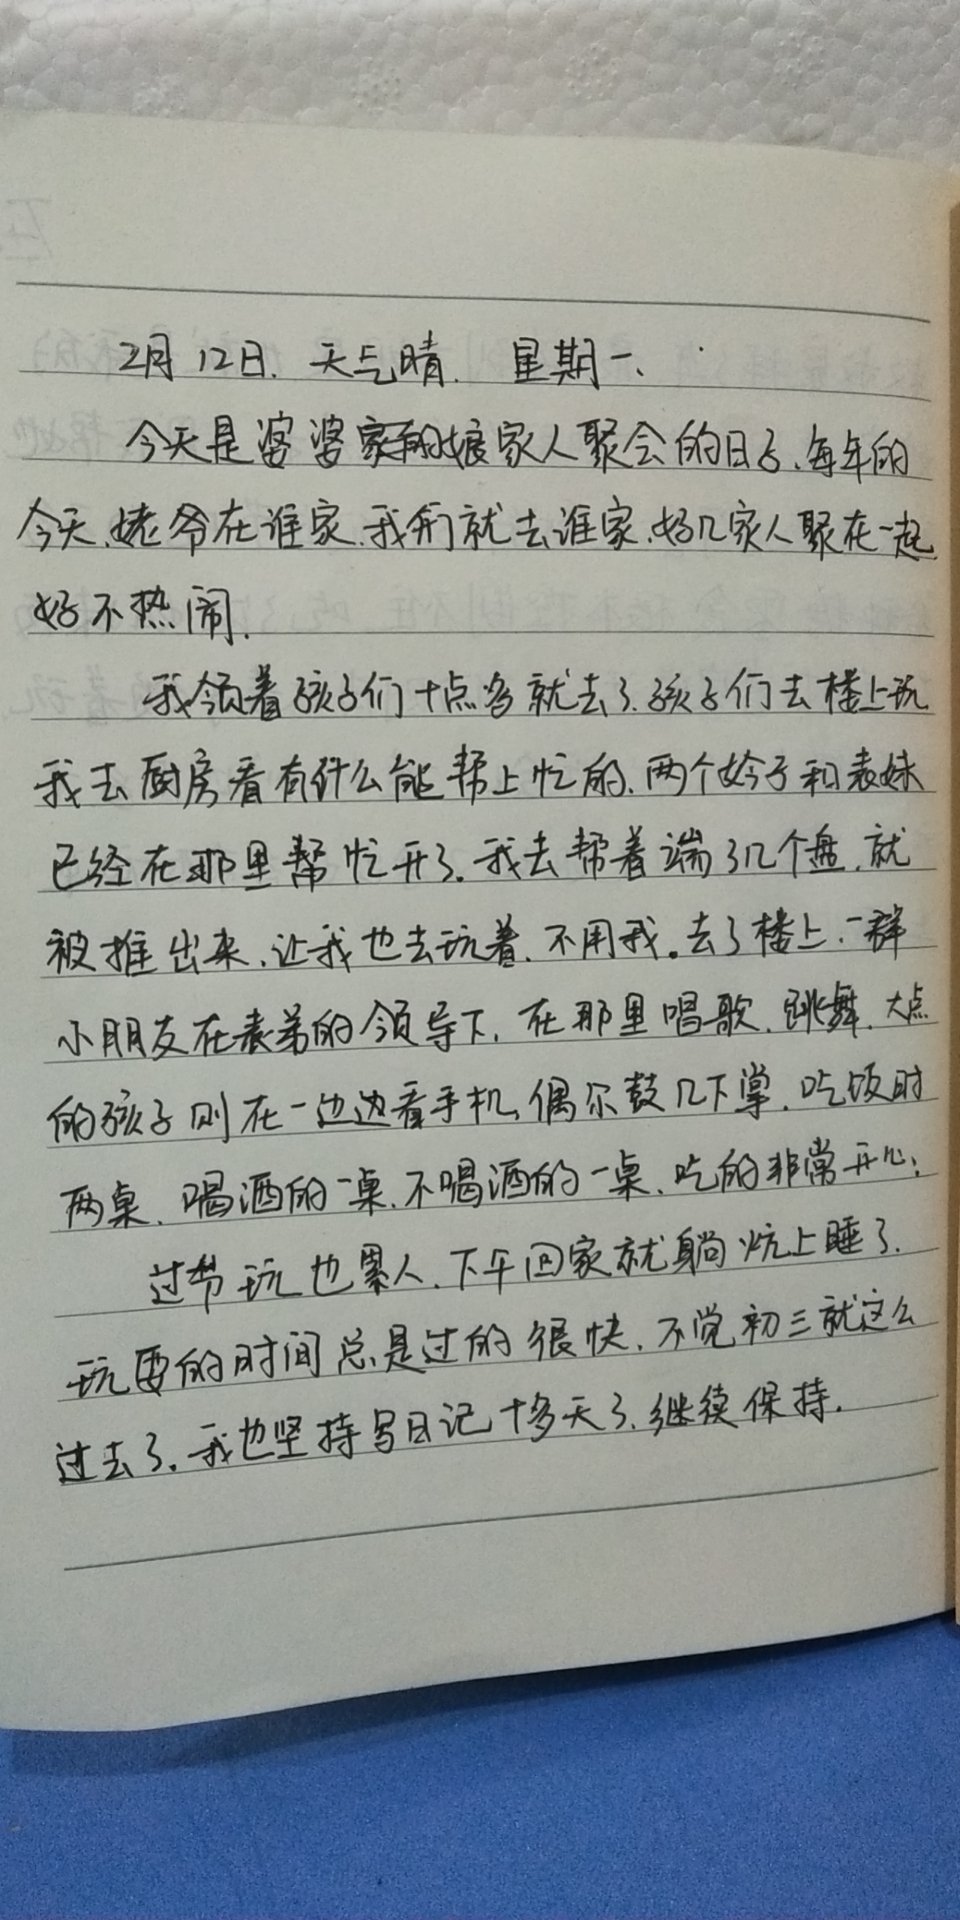 2月12日. 天气晴. 星期一.
今天是婆婆家的娘家人聚会的日子.每年的
今天.姥爷在谁家.我们就去谁家.好几家人聚在一起.
好不热闹.
我领着孩子们十点多就去了.孩子们去楼上玩
我去厨房看有什么能帮上忙的.两个妗子和表妹
已经在那里帮忙开了.我去帮着端了几个盘.就
被推出来.让我也去玩着.不用我。去了楼上.一群
小朋友在表弟的领导下.在那里唱歌.跳舞.大点
的孩子则在一边边看手机.偶尔鼓几下掌.吃饭时
两桌.喝酒的一桌.不喝酒的一桌.吃的非常开心.
过节玩也累人.下午回家就躺炕上睡了.
玩耍的时间总是过的很快.不觉初三就这么
过去了.我也坚持写日记十多天了.继续保持.